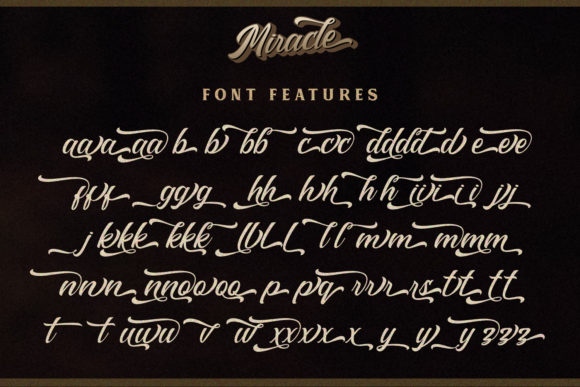 Miracle
FONT FEATURES
aaa aa b b bb c cc dddd d e ee
fff ggg hh hh h h iii i jj
j kkk kkk lll l l mm mmm
nnn nnoooo p pq rrr rs tt tt
t t uuu v w xxxx x y y y zzz